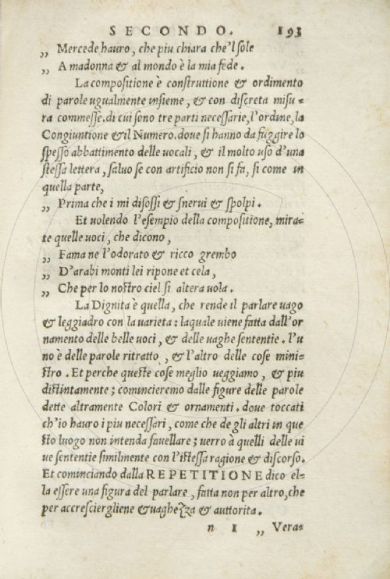 SECONDO. 193
„ Mercede hauro, che piu chiara che'l sole
„ A madonna & al mondo è la mia fede.
La compositione è construttione & ordimento
di parole ugualmente insieme, & con discreta misu-
ra commesse. di cui sono tre parti necessarie, l'ordine, la
Congiuntione & il Numero. dove si hanno da fuggire lo
spesso abbattimento delle vocali, & il molto uso d'una
stessa lettera, salvo se con artificio non si fa, si come in
quella parte,
„ Prima che i mi disossi & snervi & spolpi.
Et volendo l'esempio della compositione, mira-
te quelle voci, che dicono,
„ Fama ne l'odorato & ricco grembo
„ D'arabi monti lei ripone et cela,
„ Che per lo nostro ciel si altera vola.
La Dignità è quella, che rende il parlare vago
& leggiadro con la varieta: laquale viene fatta dall'or-
namento delle belle voci, & delle vaghe sententie. l'u
no è delle parole ritratto, & l'altro delle cose mini-
stro. Et perche queste cose meglio veggiamo, & piu
distintamente; comincieremo dalle figure delle parole
dette altramente Colori & ornamenti. dove toccati
ch'io hauro i piu necessari, come che de gli altri in que
sto luogo non intenda favellare; verro à quelli delle vi
ve sententie similmente con l'istessa ragione & discorso.
Et cominciando dalla REPETITIONE dico el-
la essere una figura del parlare, fatta non per altro, che
per accresciergliene & vaghezza & auttorita.
n 1 „ Vera-